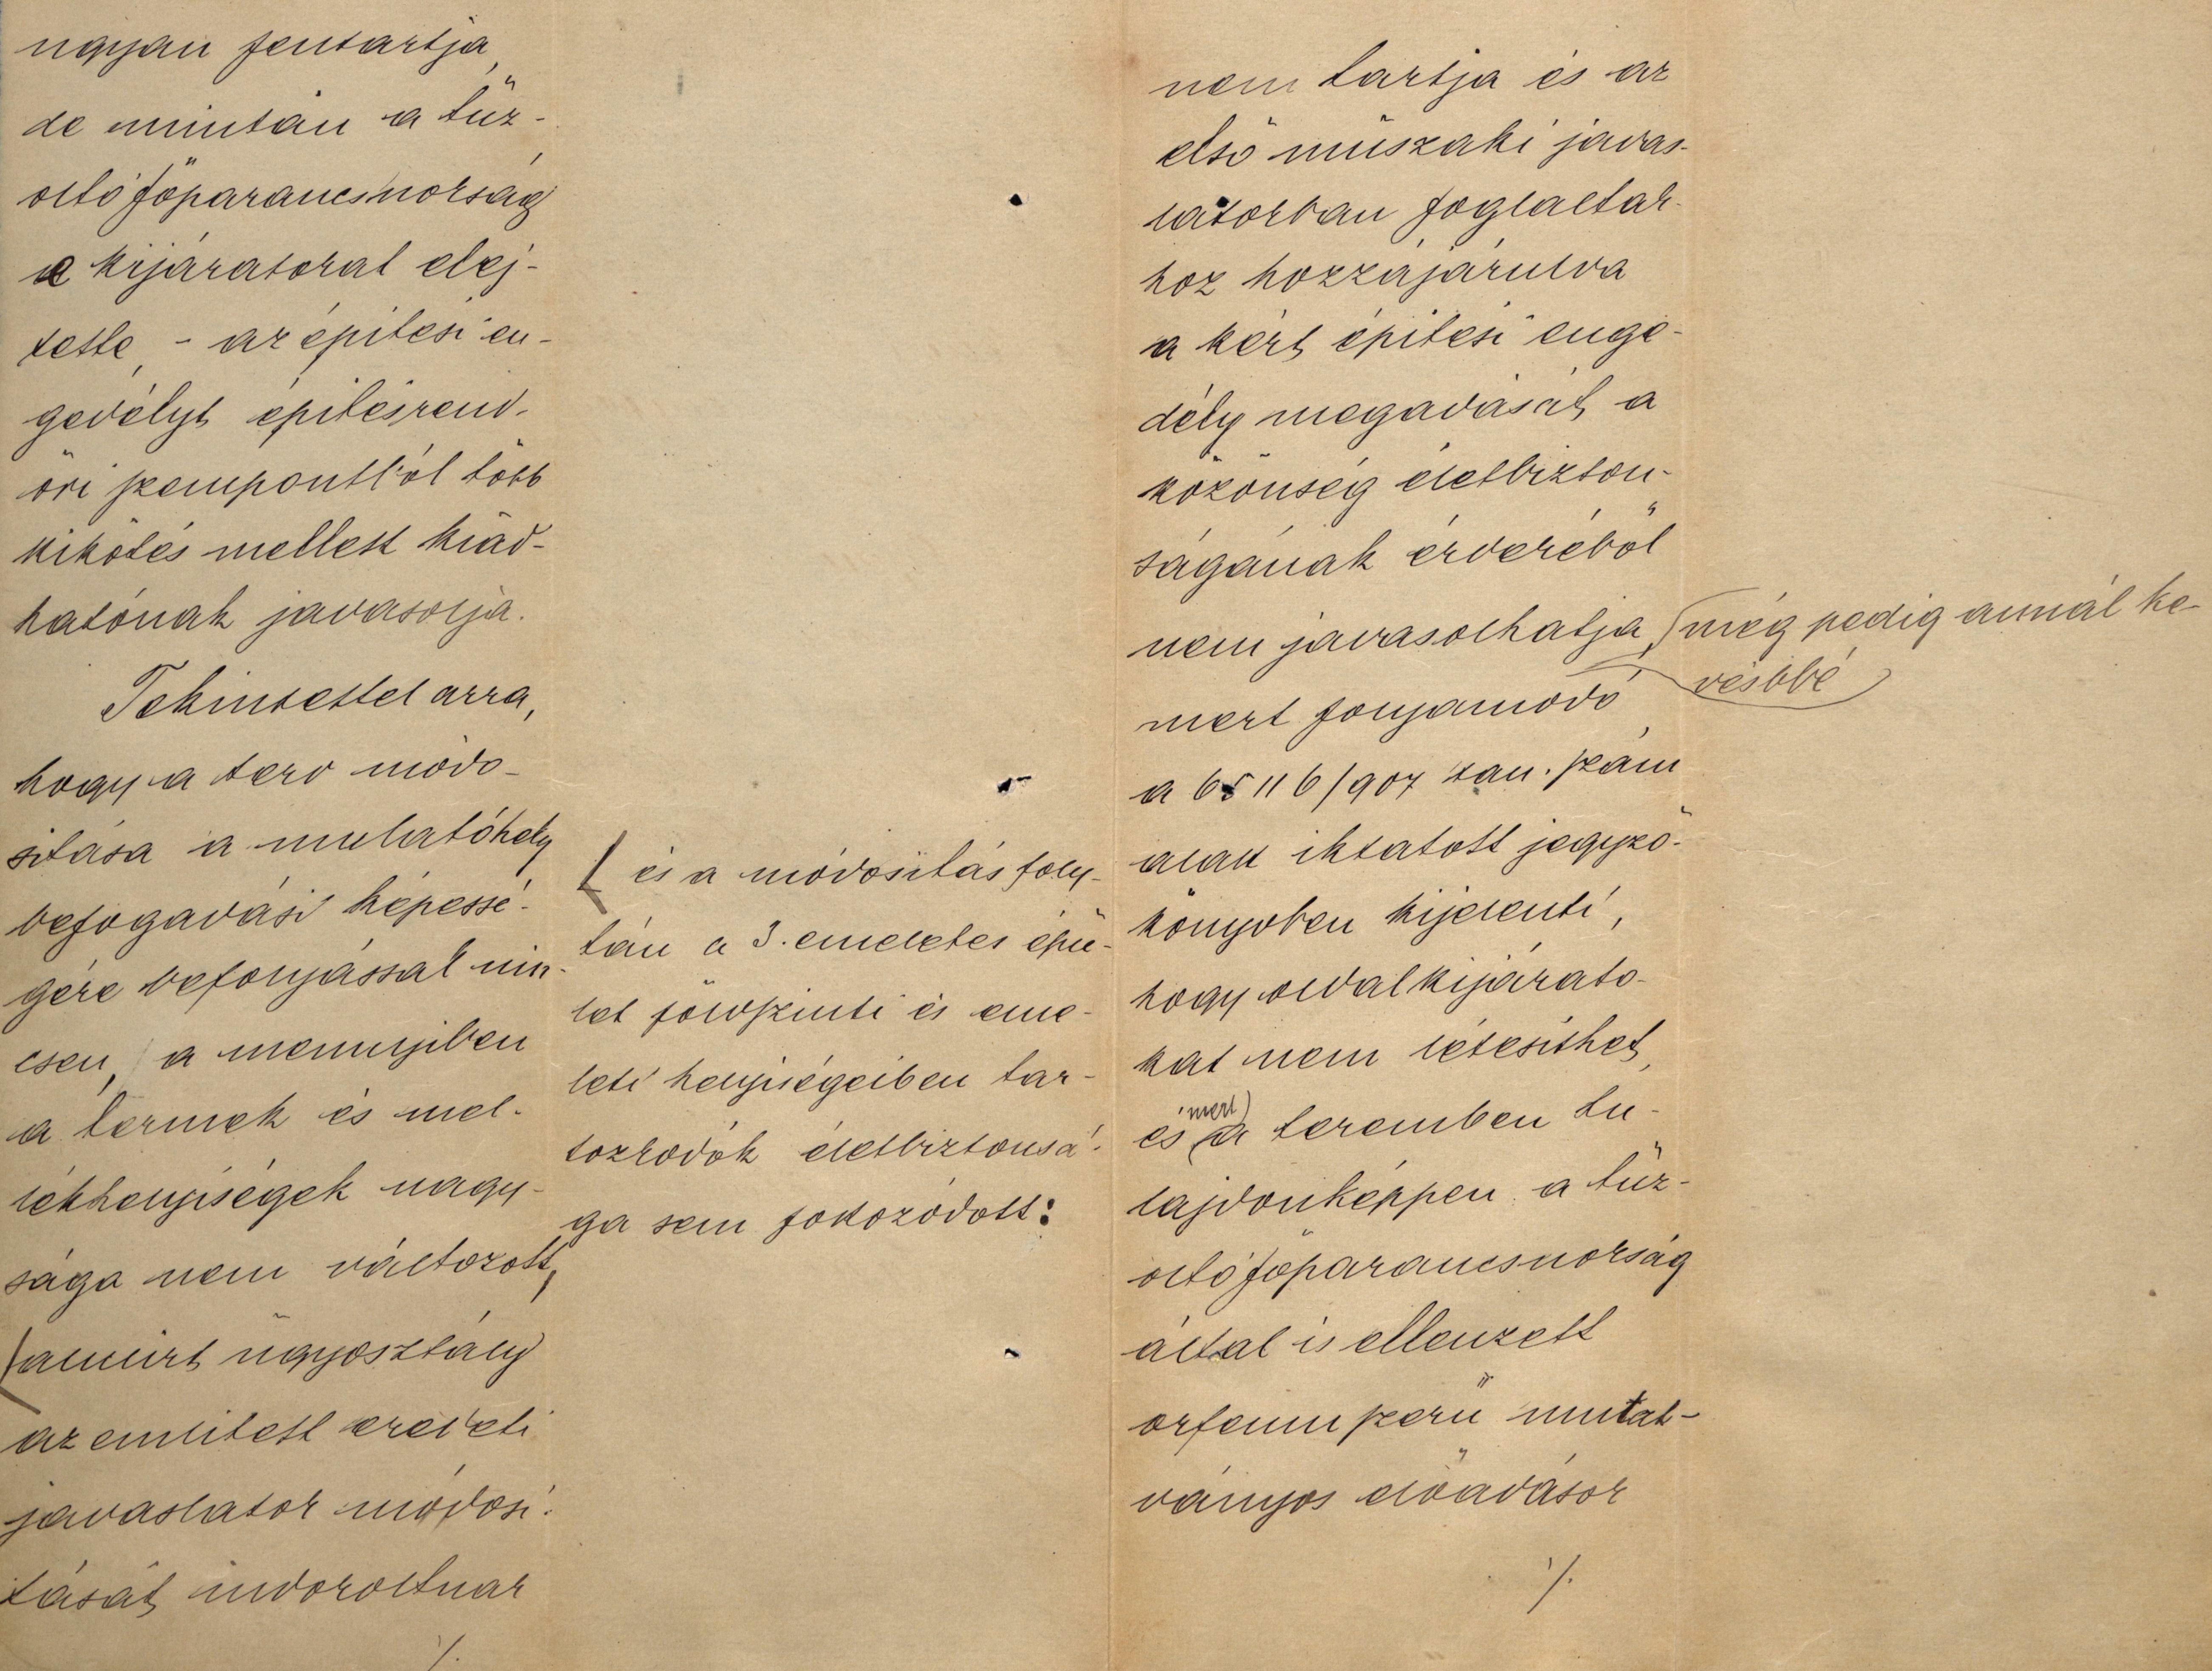 ugyan fentartja,
de miután a tűz-
oltó főparancsnokság
a kijáratokat elej-
tette, - az épitési en-
gedélyt épitésrend-
őri szempontból több
kikötés mellett kiad-
hatónak javasolja.
Tekintettel arra,
hogy a terv módo-
sitása a mulatóhely
befogadási képessé-
gére befolyással nin-
csen, a mennyiben
a termek és mel-
lékhelyiségek nagy-
sága nem változott,
(amiért ügyosztály
az emlitett eredeti
javaslatok módosi-
tását indokoltnak
./.
(és a módositás foly-
tán a 3. emeletes épü-
let földszinti és eme-
leti helyiségeiben tar-
tozkodók életbiztonsá-
ga sem fokozódott:
nem tartja és az
első műszaki javas-
latokban foglaltak-
hoz hozzájárulva
a kért épitési enge-
dély megadását a
közönség életbizton-
ságának érdekéből
nem javasolhatja, (még pedig annál ke-
vésbbé)
mert folyamodó
a 65116/907 tan. szám
alatt iktatott jegyző-
könyvben kijelenti,
hogy oldalkijárato-
kat nem létesithet,
és (mert) a teremben tu-
lajdonképpen a tűz-
oltó főparancsnokság
által is ellenzett
orfeum szerü mutat-
ványos előadások
./.